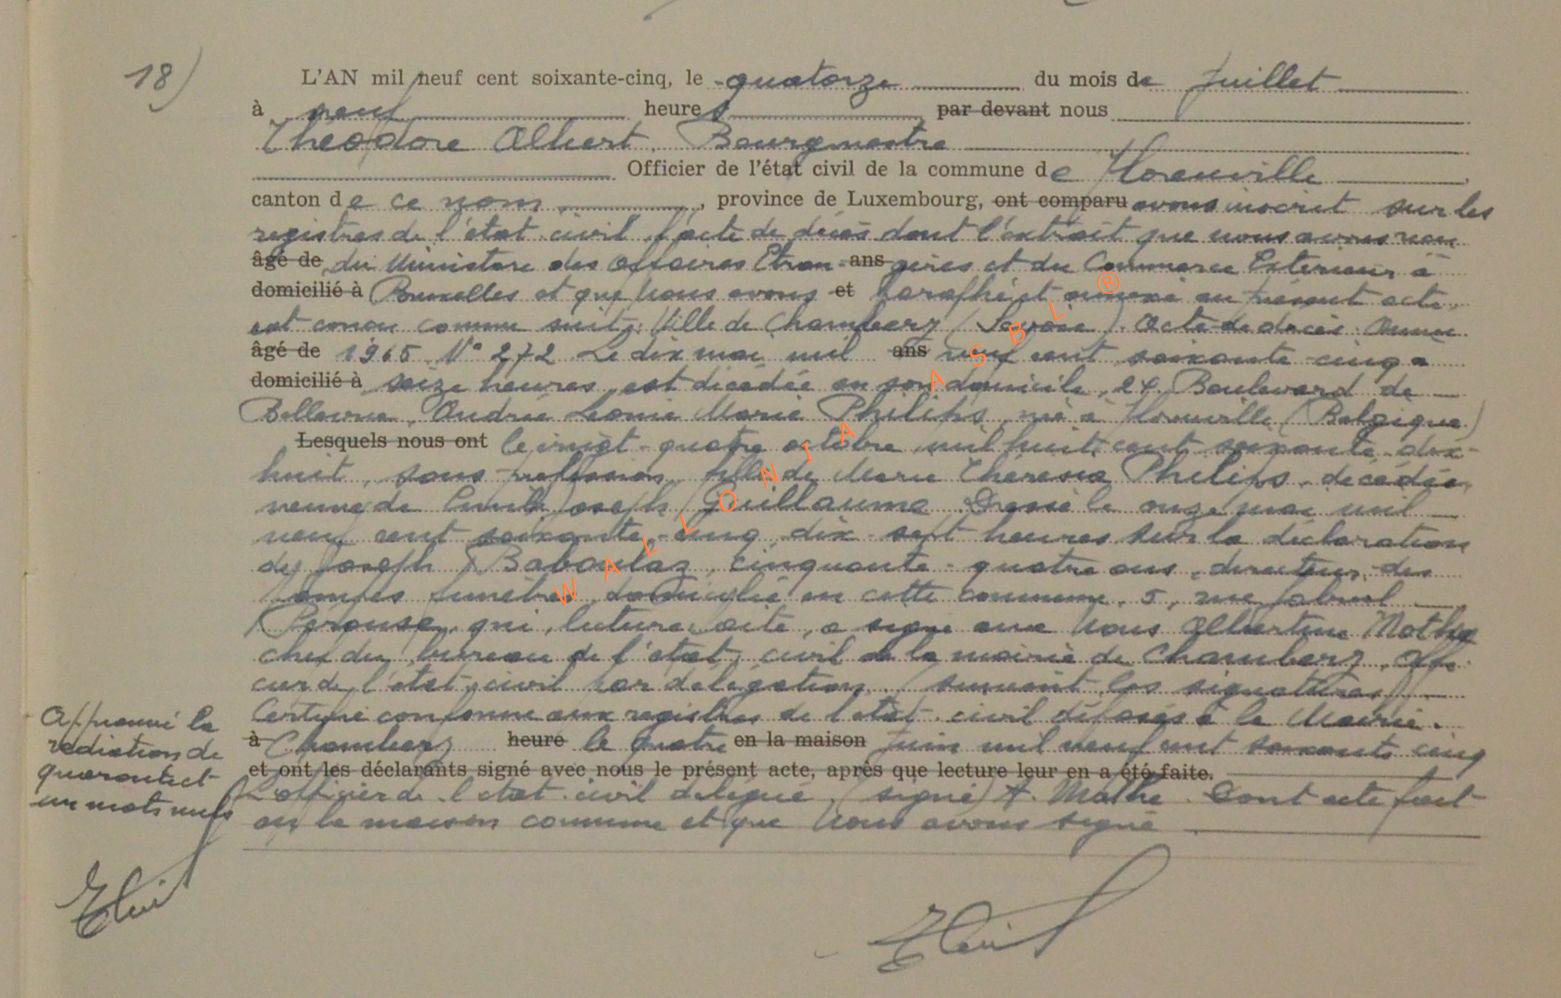 18)
L'AN mil neuf cent soixante-cinq, le quatorze du mois de Juillet
à neuf heures par devant nous
Théodore Albert, Bourgmestre
Officier de l'état civil de la commune de Florenville
canton de ce nom, province de Luxembourg, ont comparu avons inscrit sur les
registres de l'état civil l'acte de décès dont l'extrait que nous avons reçu
âgé de du Ministère des Affaires Etran- ans gères et du Commerce Extérieur à
domicilié à Bruxelles et que Nous avons et paraphé et annexé au présent acte,
est conçu comme suit: Ville de Chambery (Savoie). Acte de décès. Année
âgé de 1965 N° 272 Le dix mai mil ans neuf cent soixante-cinq à
domicilié à seize heures, est décédée en son domicile, 24, Boulevard de
Bellevue, Andrée Léonie Marie Philips, née à Florenville (Belgique)
Lesquels nous ont le vingt-quatre octobre mil huit cent soixante-dix-
huit, sans profession, fille de Marie Theresia Philips, décédée,
veuve de Joseph Guillaume. Dressé le onze mai mil
neuf cent soixante-cinq, dix-sept heures sur la déclaration
de Joseph Baboulaz, cinquante-quatre ans, directeur des
Pompes funèbres, domicilié en cette commune, 5, rue
Pérouse, qui, lecture faite, a signé avec Nous Albertine Mathe
chef du bureau de l'état civil de la mairie de Chambery, offi-
cier de l'état civil par délégation. (suivent les signatures)
Certifié conforme aux registres de l'état civil déposés à la Mairie.
à Chambery heure le quatre en la maison Juin mil neuf cent soixante cinq
et ont les déclarants signé avec nous le présent acte, après que lecture leur en a été faite.
L'officier de l'état civil délégué, (signé) A. Mathe. Dont acte fait
en la maison commune et que Nous avons signé
Approuvé la
radiation de
quarante et
un mots nuls
WALLONIA ASBL ®